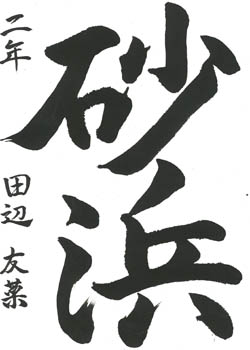 砂浜
二年 田辺 友菜